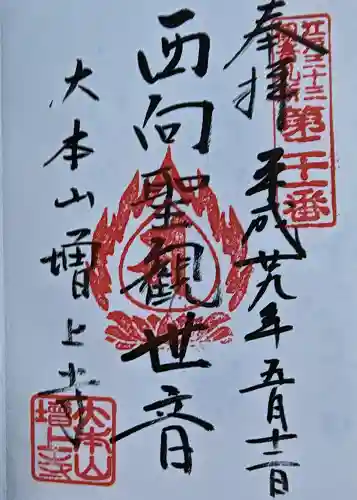 奉拝
平成廿九年五月十二日
江戸三十三
観音札所
第二十一番
西向聖観世音
大本山増上寺
大本山
増上寺